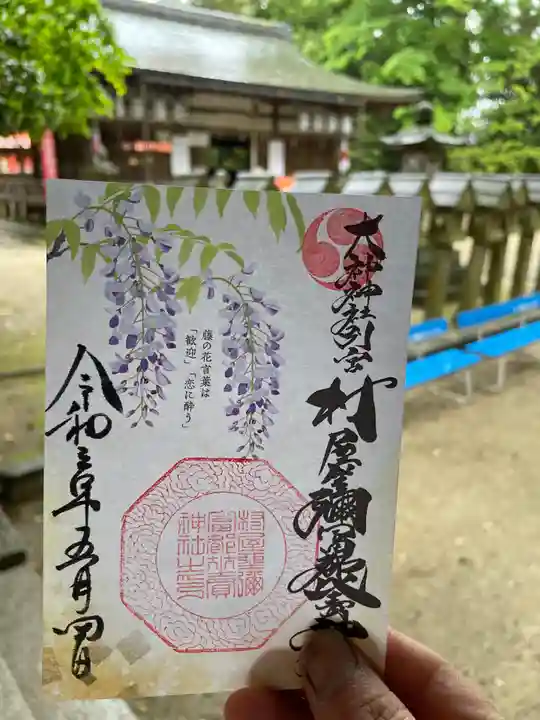 大神神社別宮
村屋坐彌冨都比賣神社
藤の花言葉は
「歓迎」「恋に酔う」
村屋坐彌
冨都比賣
神社之印
令和三年五月四日